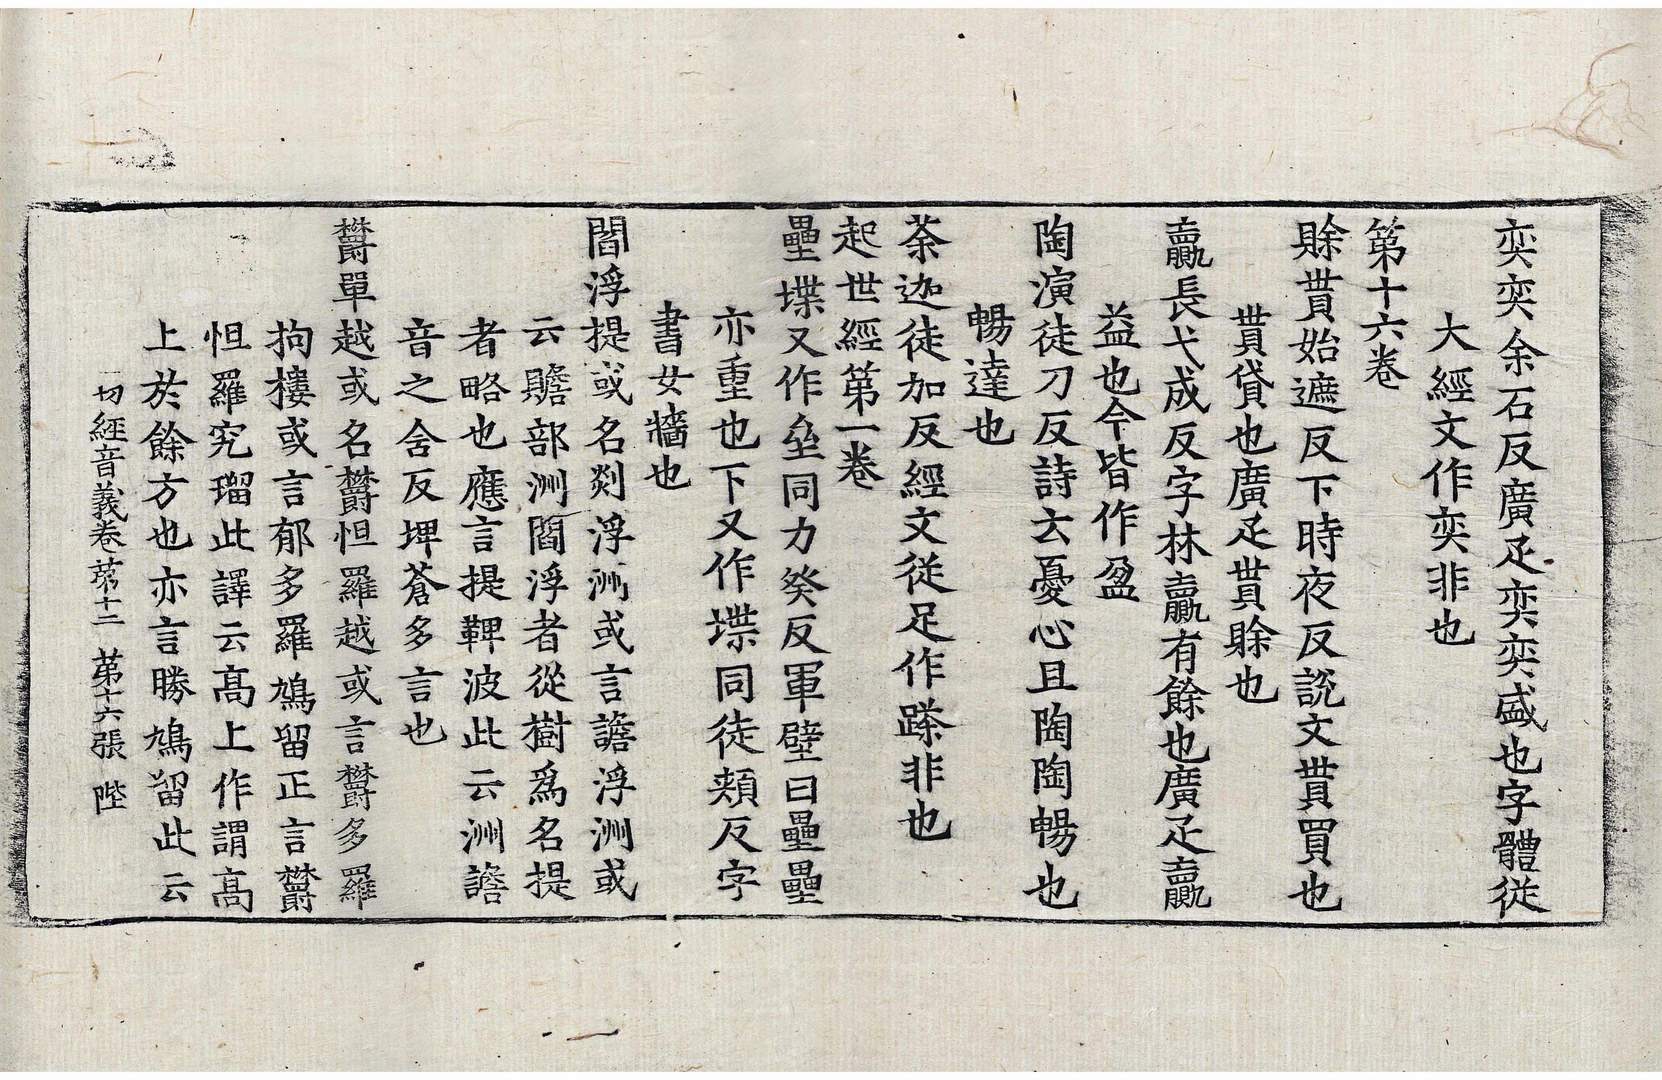 奕奕余石反廣疋奕奕盛也字體從
大經文作奕非也
第十六卷
賖貰始遮反下時夜反說文貰買也
貰貸也廣疋貰賖也
贏長弋成反字林贏有餘也廣疋贏
益也今皆作盈
陶演徒刀反詩云憂心且陶陶暢也
暢達也
荼迦徒加反經文從足作蹂非也
起世經第一卷
壘堞又作垒同力癸反軍壁曰壘壘
亦重也下又作堞同徒頬反字
書女牆也
閻浮提或名剡浮洲或言譫浮洲或
云贍部洲閻浮者從樹爲名提
者略也應言提鞞波此云洲譫
音之含反埤蒼多言也
欝單越或名欝怛羅越或言欝多羅
拘樓或言郁多羅鳩留正言欝
怛羅究瑠此譯云髙上作謂髙
上於餘方也亦言勝鳩留此云
一切經音義卷苐十二 苐十六張 陛